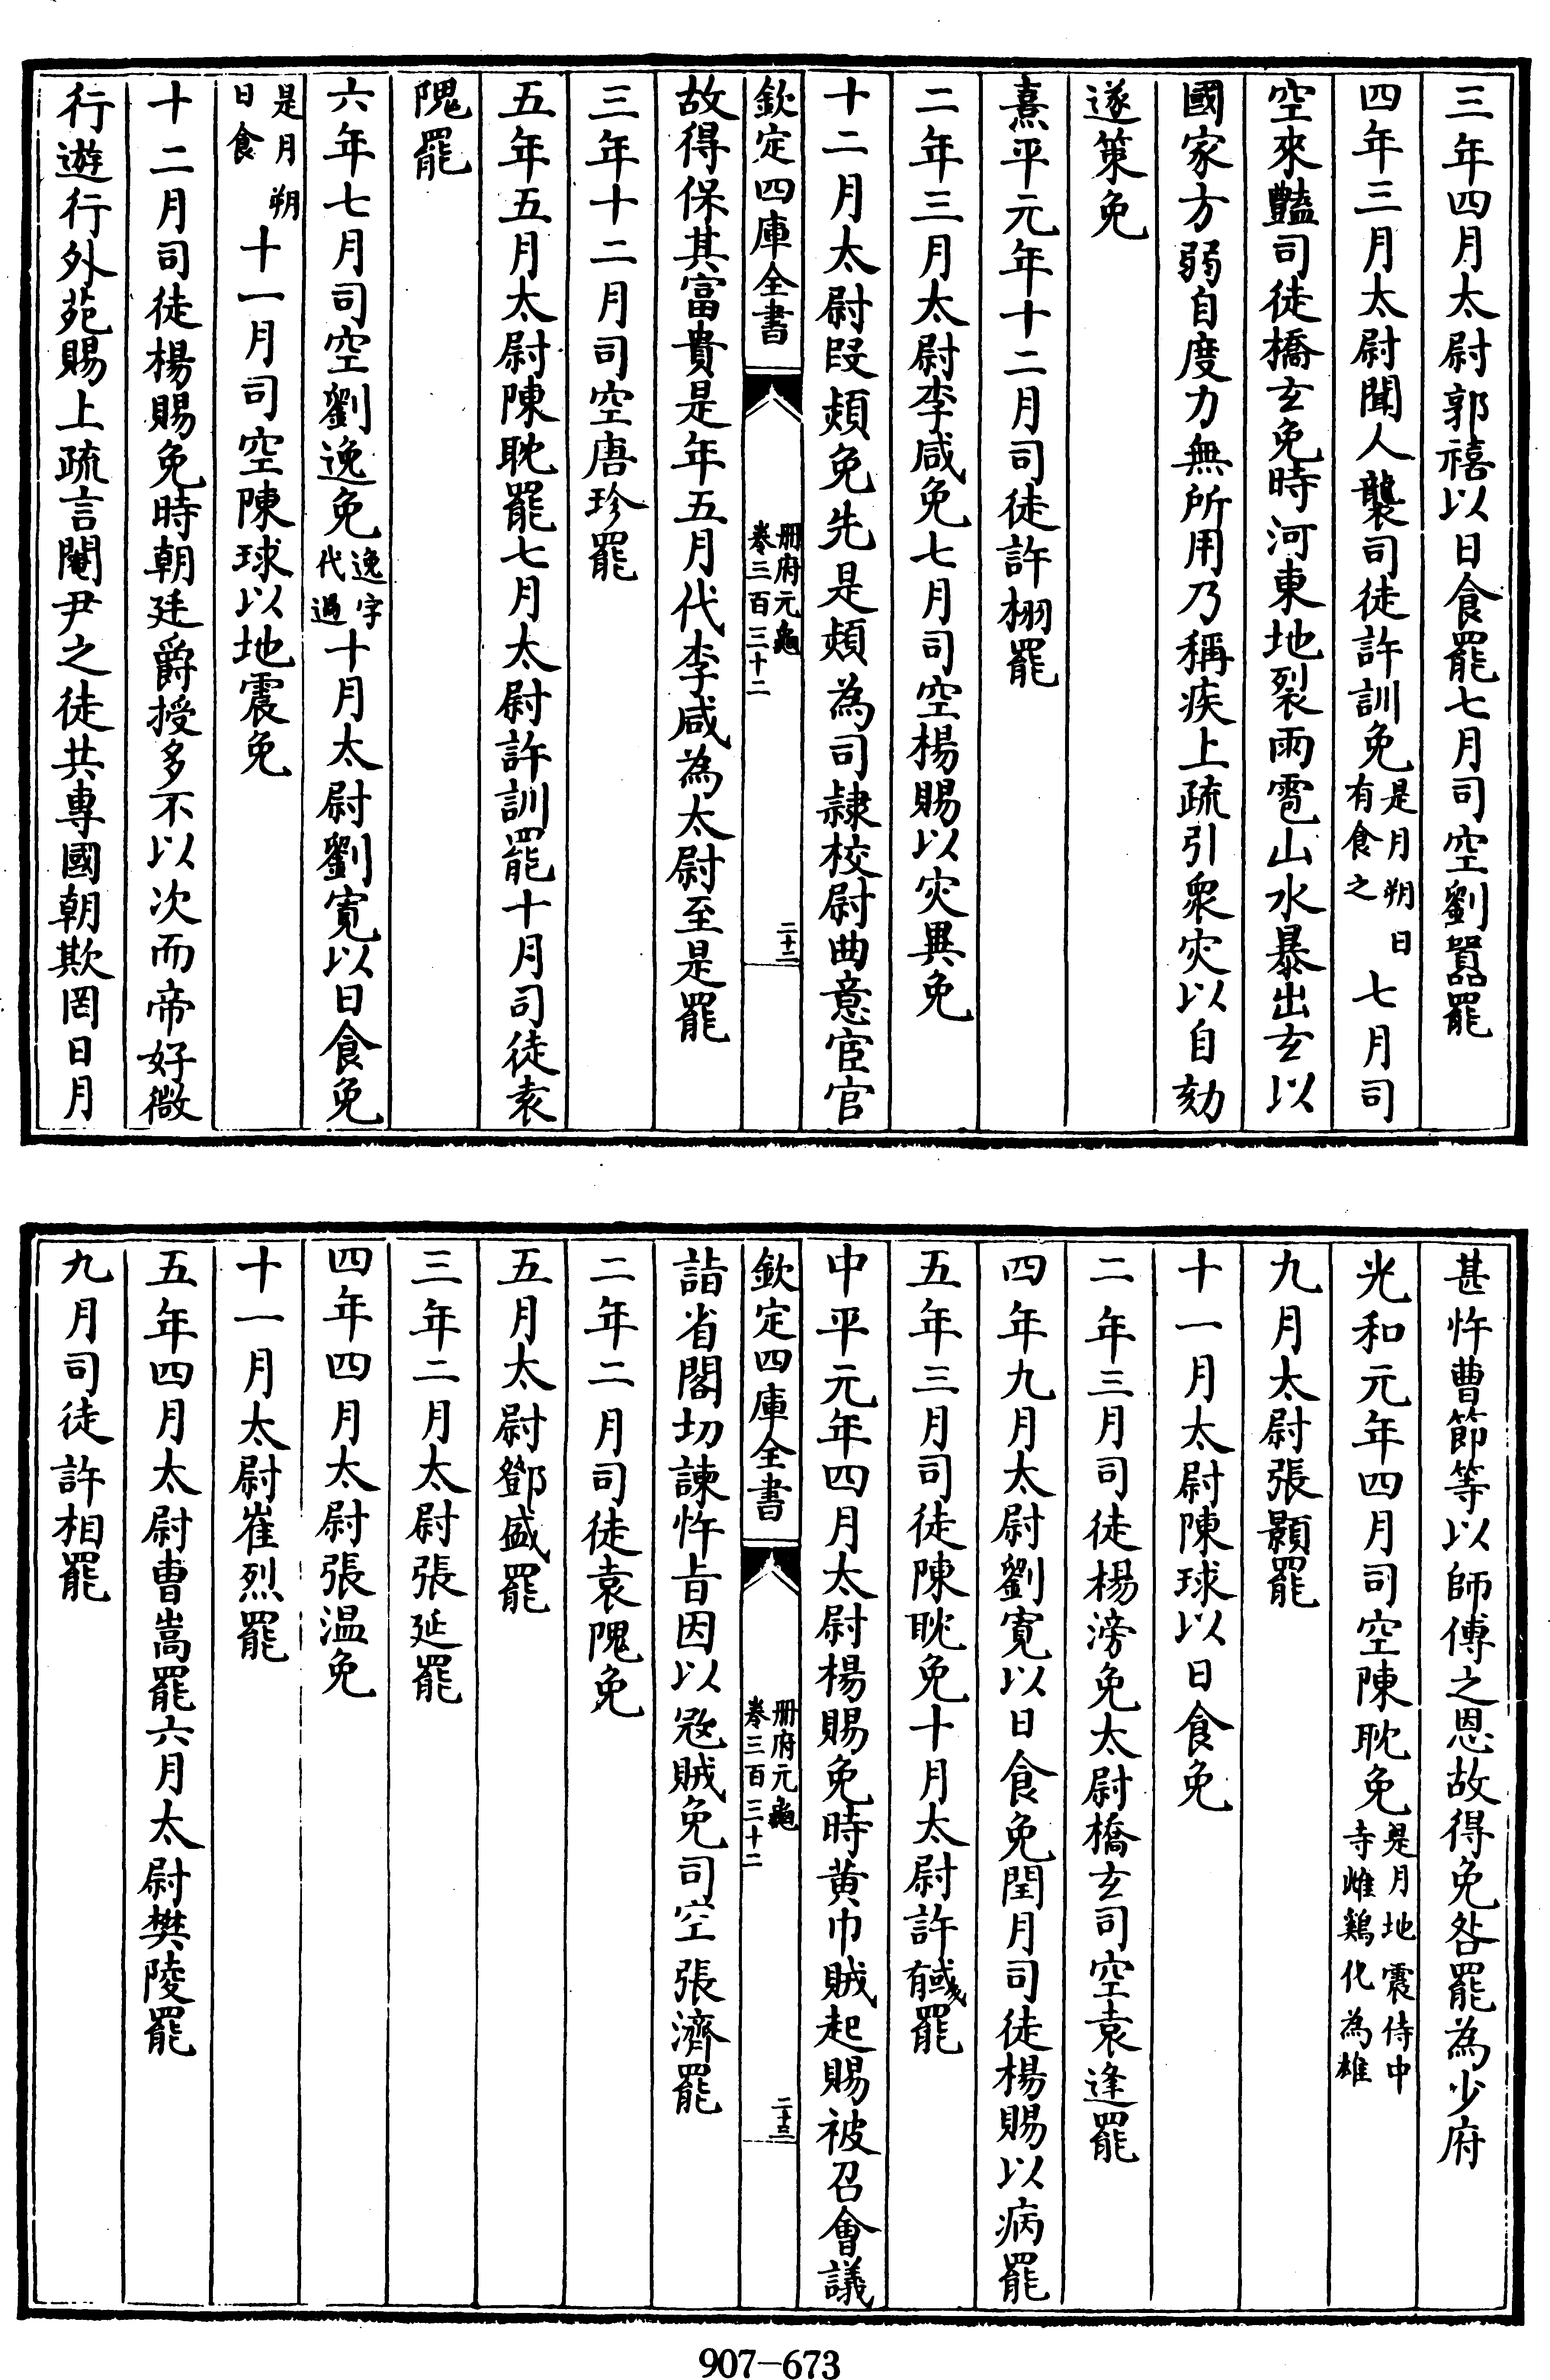 三年四月太尉郭禧以日食罷七月司空劉囂罷
四年三月太尉聞人襲司徒許訓免是月朔日有食之七月司
空來豔司徒橋玄免時河東地裂雨雹山水暴出玄以
國家方弱自度力無所用乃稱疾上疏引衆灾以自劾
遂策免
熹平元年十二月司徒許栩罷
二年三月太尉李咸免七月司空楊賜以灾異免
十二月太尉段熲免先是熲為司隸校尉曲意宦官
欽定四庫全書 冊府元龜卷三百三十二 二十二
故得保其富貴是年五月代李咸為太尉至是罷
三年十二月司空唐珍罷
五年五月太尉陳耽罷七月太尉許訓罷十月司徒袁
隗罷
六年七月司空劉逸免逸字代過十月太尉劉寛以日食免
是月朔日食十一月司空陳球以地震免
十二月司徒楊賜免時朝廷爵授多不以次而帝好微
行遊行外苑賜上疏言閹尹之徒共專國朝欺罔日月
甚忤曹節等以師傅之恩故得免咎罷為少府
光和元年四月司空陳耽免是月地震侍中寺雌鷄化為雄
九月太尉張顥罷
十一月太尉陳球以日食免
二年三月司徒楊滂免太尉橋玄司空袁逢罷
四年九月太尉劉寛以日食免閏月司徒楊賜以病罷
五年三月司徒陳耽免十月太尉許馘罷
中平元年四月太尉楊賜免時黄巾賊起賜被召會議
欽定四庫全書 冊府元龜卷三百三十二 二十三
詣省閣切諫忤旨因以寇賊免司空張濟罷
二年二月司徒袁隗免
五月太尉鄧盛罷
三年二月太尉張延罷
四年四月太尉張温免
十一月太尉崔烈罷
五年四月太尉曹嵩罷六月太尉樊陵罷
九月司徒許相罷
907-673